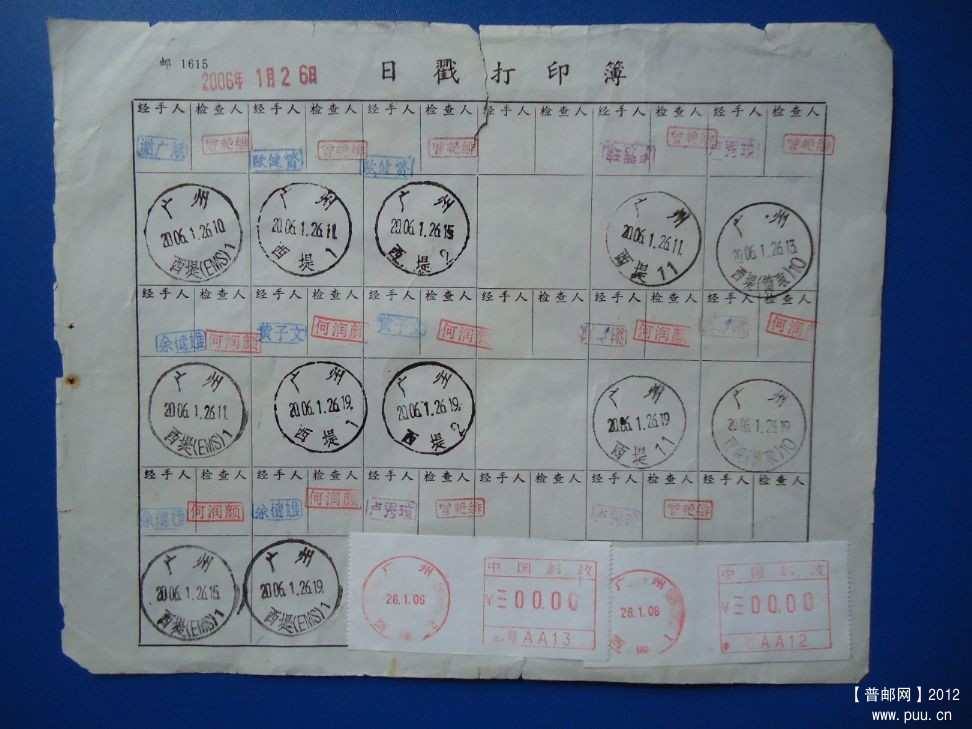 邮 1615
2006年 1月26日
日戳打印簿
经手人 检查人 经手人 检查人 经手人 检查人 经手人 检查人 经手人 检查人 经手人 检查人
曾艳维 欧健贤 曾艳维 欧健贤 曾艳维 曾艳维 卢秀琼 曾艳维
广州 2006.1.26.10 西堤(EMS)1
广州 2006.1.26.11. 西堤 1
广州 2006.1.26.15 西堤 2
广州 2006.1.26.11. 西堤 11
广州 2006.1.26.13. 西堤 10
经手人 检查人 经手人 检查人 经手人 检查人 经手人 检查人 经手人 检查人 经手人 检查人
何润颜 黄子文 何润颜 黄子文 何润颜 何润颜 何润颜
广州 2006.1.26.11. 西堤(EMS)1
广州 2006.1.26.19. 西堤 1
广州 2006.1.26.19. 西堤 2
广州 2006.1.26.19 西堤 11
广州 2006.1.26.19 西堤 10
经手人 检查人 经手人 检查人 经手人 检查人 经手人 检查人 经手人 检查人 经手人 检查人
何润颜 何润颜 卢秀琼 曾艳维 卢秀琼 曾艳维
广州 2006.1.26.15. 西堤(EMS)1
广州 2006.1.26.19. 西堤(EMS)1
广州 26.1.06 西堤 2
中国邮政
¥=00.00
粤 AA13
广州 26.1.06 西堤 1
中国邮政
¥=00.00
粤 AA12
【普邮网】2012
www.puu.cn